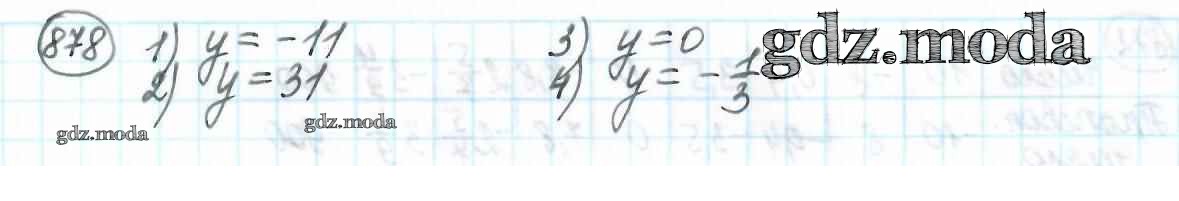 878 1) y = -11 3) y = 0 gdz.moda
2) y = 31 4) y = -1/3
gdz.moda gdz.moda